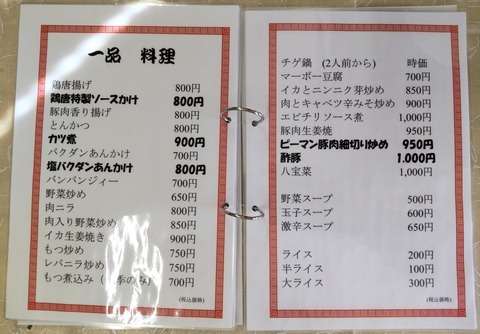 一品 料理
鶏唐揚げ 800円
鶏唐特製ソースかけ 800円
豚肉香り揚げ 800円
とんかつ 800円
カツ煮 900円
バクダンあんかけ 700円
塩バクダンあんかけ 800円
バンバンジィー 700円
野菜炒め 650円
肉ニラ 800円
肉入り野菜炒め 850円
イカ生姜焼き 900円
もつ炒め 750円
レバニラ炒め 750円
もつ煮込み (冬季のみ) 700円
(税込価格)
チゲ鍋 (2人前から) 時価
マーボー豆腐 700円
イカとニンニク芽炒め 850円
肉とキャベツ辛みそ炒め 900円
エビチリソース煮 1,000円
豚肉生姜焼 950円
ピーマン豚肉細切り炒め 950円
酢豚 1,000円
八宝菜 1,000円
野菜スープ 500円
玉子スープ 600円
激辛スープ 650円
ライス 200円
半ライス 100円
大ライス 300円
(税込価格)